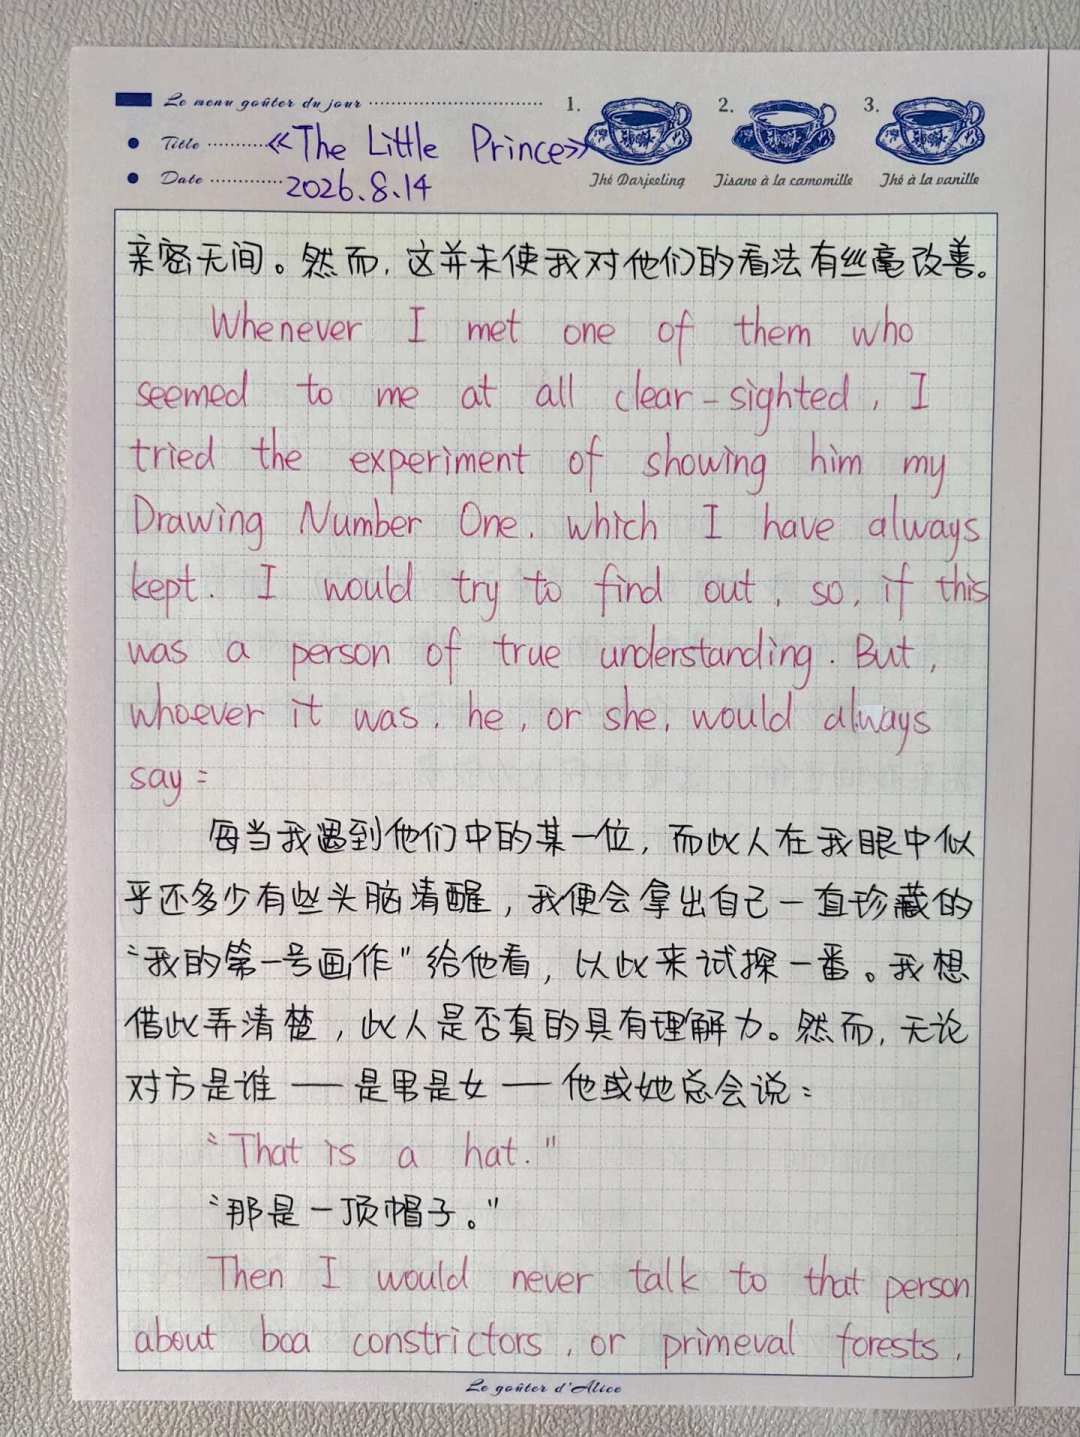 Le menu goûter du jour
1. 2. 3.
Title 《The Little Prince》
Date 2026.8.14
Thé Darjeeling Tisane à la camomille Thé à la vanille
亲密无间。然而,这并未使我对他们的看法有丝毫改善。
Whenever I met one of them who
seemed to me at all clear-sighted, I
tried the experiment of showing him my
Drawing Number One, which I have always
kept. I would try to find out, so, if this
was a person of true understanding. But,
whoever it was, he, or she, would always
say:
每当我遇到他们中的某一位,而此人在我眼中似
乎还多少有些头脑清醒,我便会拿出自己一直珍藏的
“我的第一号画作”给他看,以此来试探一番。我想
借此弄清楚,此人是否真的具有理解力。然而,无论
对方是谁——是男是女——他或她总会说:
“That is a hat.”
“那是一顶帽子。”
Then I would never talk to that person
about boa constrictors, or primeval forests,
Le goûter d'Alice